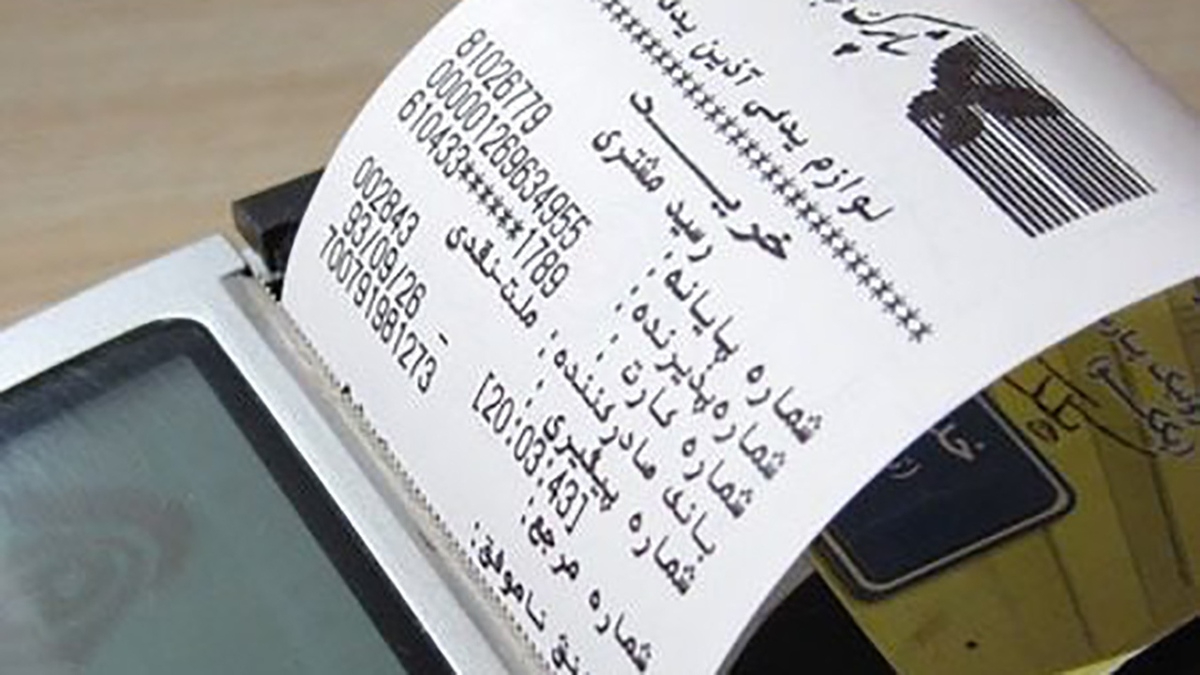 لوازم یدکی آذین
********************************
خریـــــد
رسید مشتری
شماره پایانه: 81026779
شماره پذیرنده: 000001269634955
شماره کارت: 610433******1789
بانک صادرکننده: ملت-نقدی
شماره پیگیری: 002843
[20:03:43] _ 93/09/26
شماره مرجع: 700791981273
ناموفق: